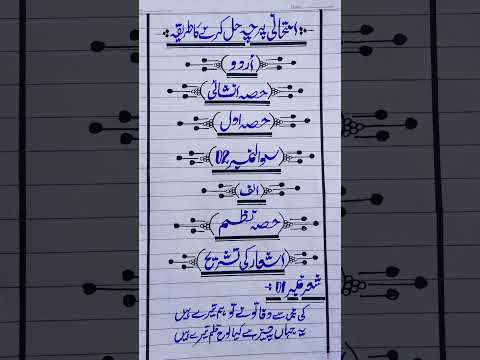 امتحانی پرچہ حل کرنے کا طریقہ
اُردو
حصہ انشائی
حصہ اول
سوال نمبر 02
الف
حصہ نظم
اشعار کی تشریح
شعر نمبر 01:-
کی محمدؐ سے وفا تو نے تو ہم تیرے ہیں
یہ جہاں چیز ہے کیا لوح و قلم تیرے ہیں